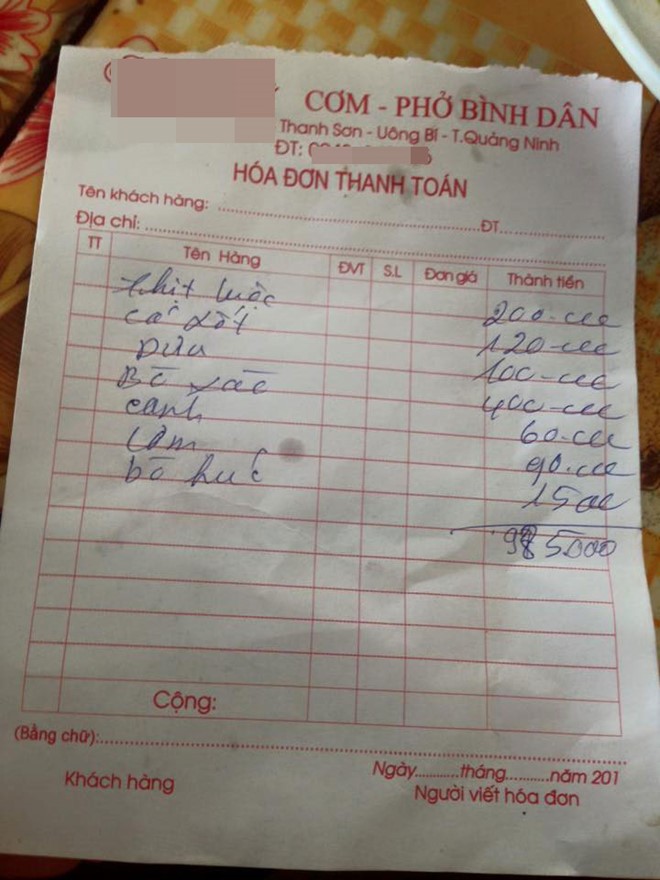 CƠM - PHỞ BÌNH DÂN
Thanh Sơn - Uông Bí - T.Quảng Ninh
ĐT:
HÓA ĐƠN THANH TOÁN
Tên khách hàng: ĐT
Địa chỉ:
TT Tên Hàng ĐVT S.L Đơn giá Thành tiền
thịt luộc 200.000
cá sốt 120.000
Dưa 100.000
Bò xào 400.000
canh 60.000
Cơm 90.000
bò húc 15.000
985000
Cộng:
(Bằng chữ):
Ngày tháng năm 201
Khách hàng Người viết hóa đơn